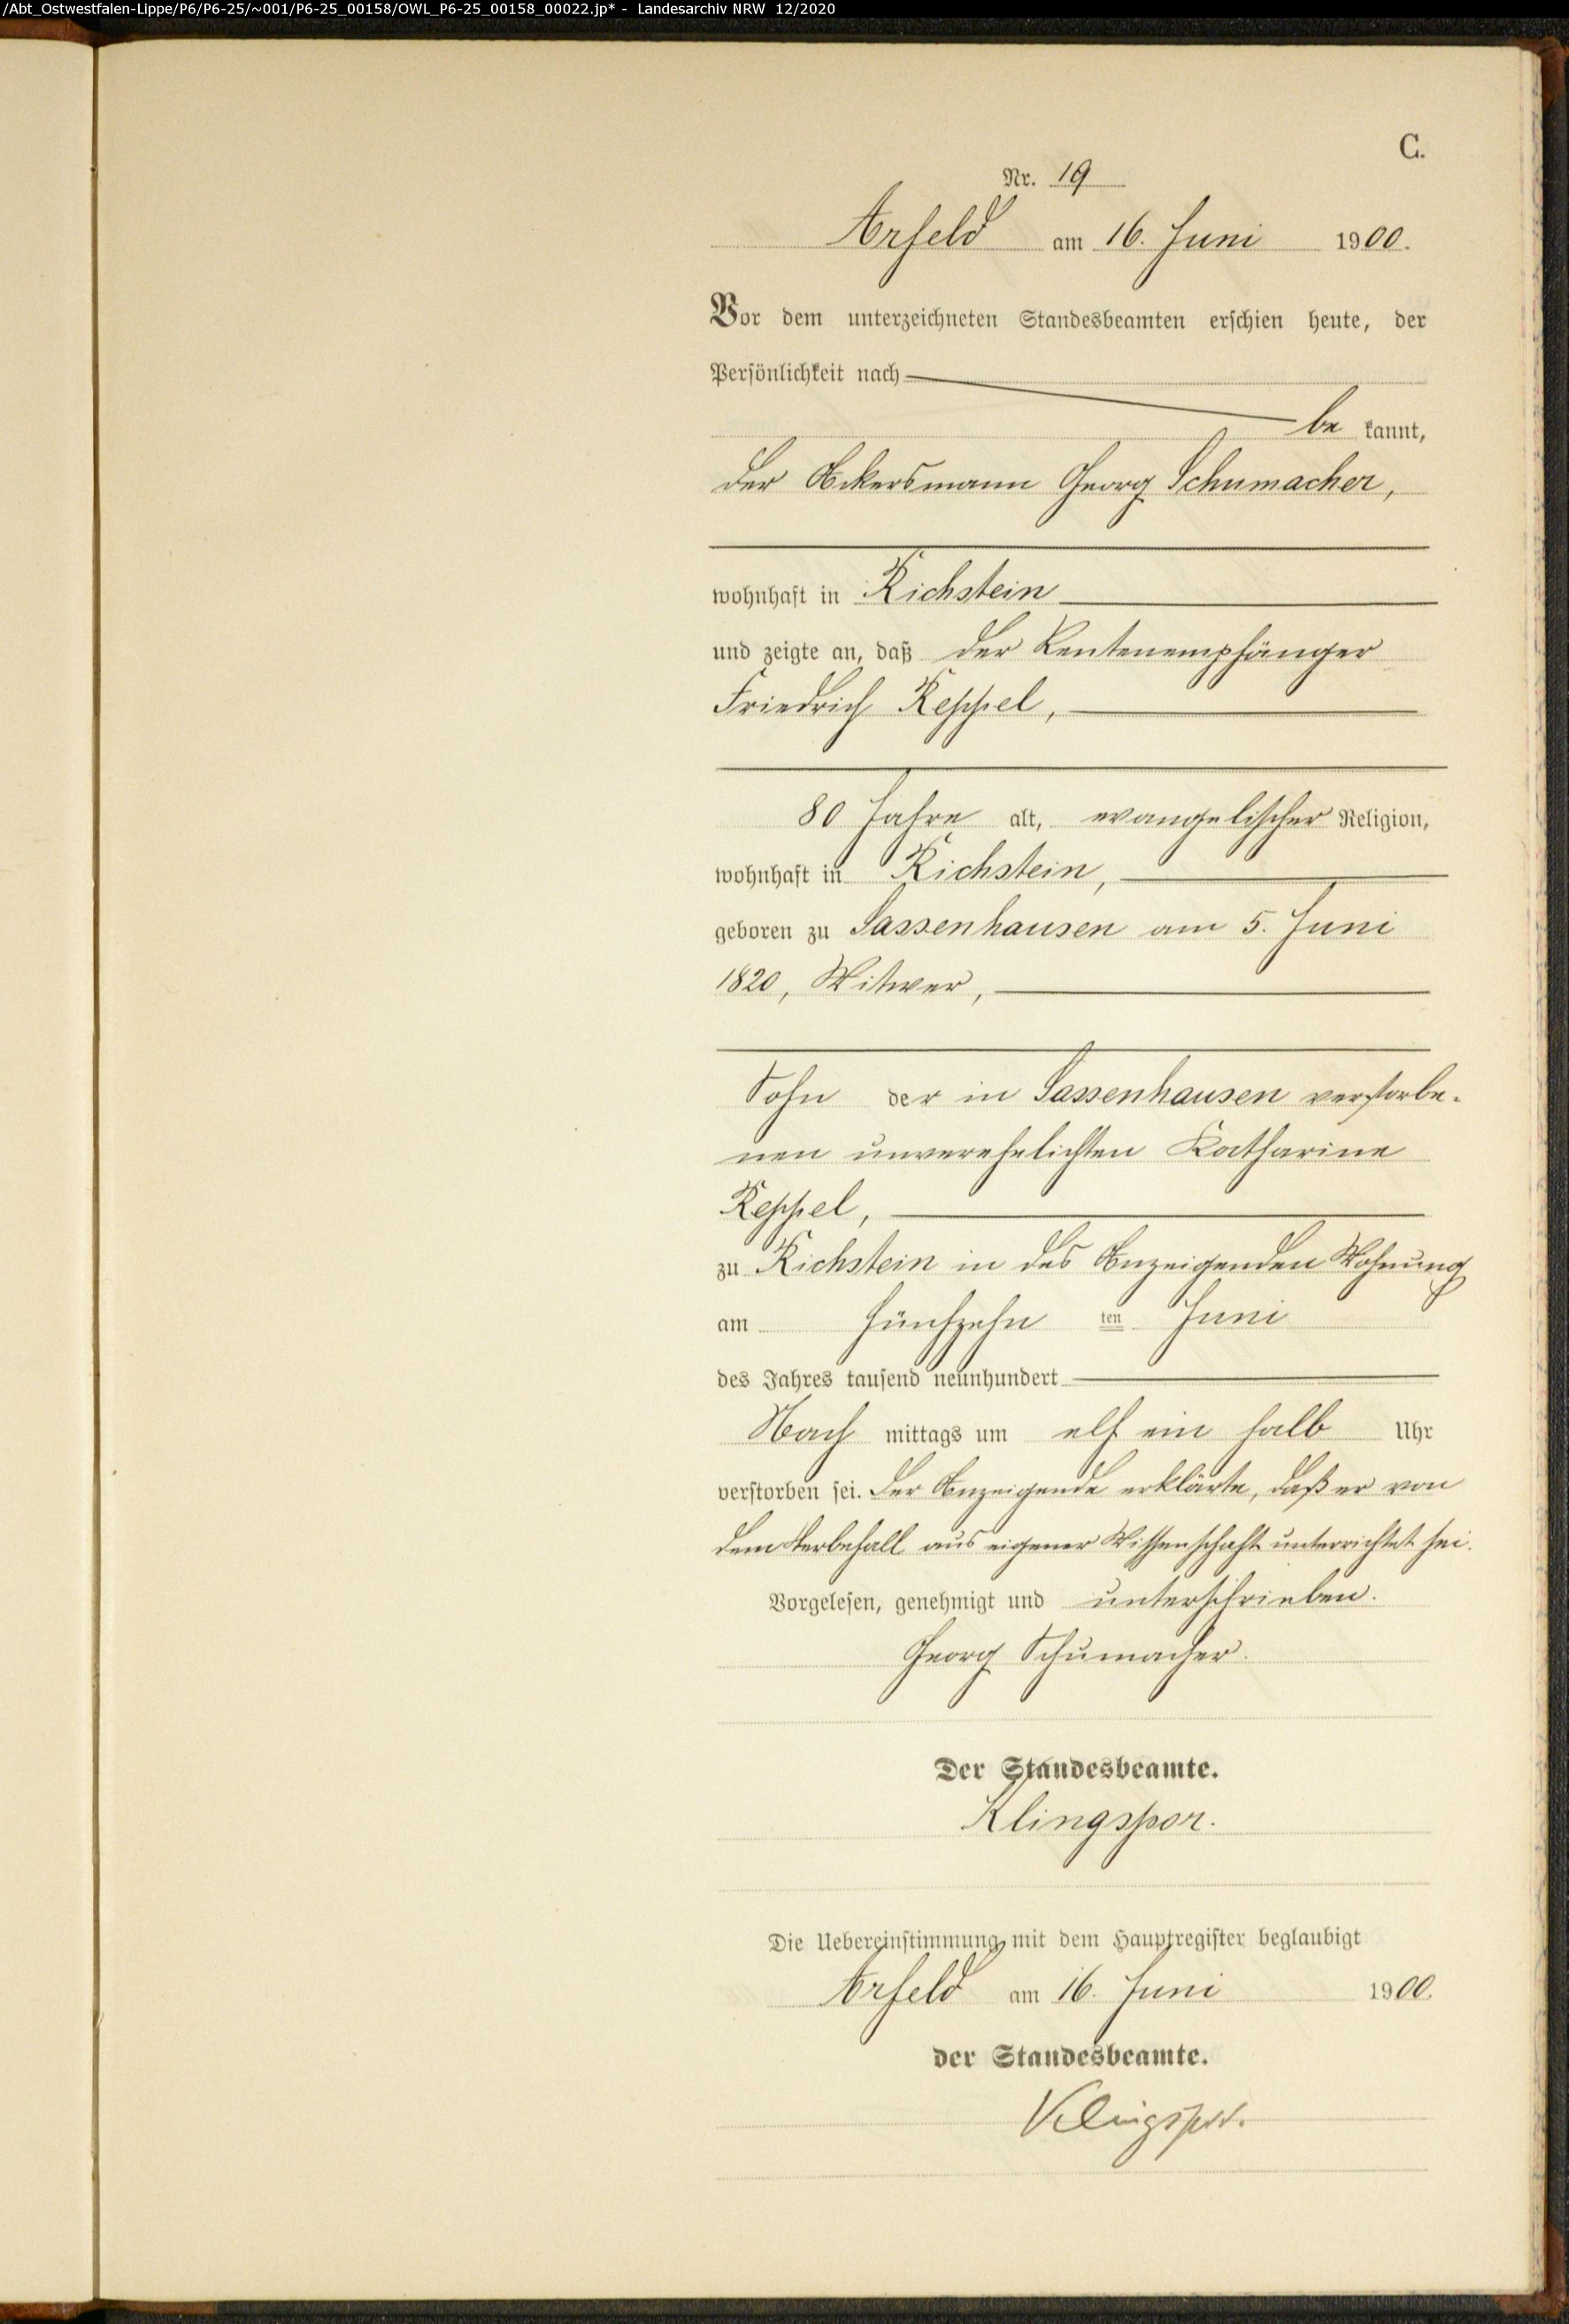 /Abt_Ostwestfalen-Lippe/P6/P6-25/~001/P6-25_00158/OWL_P6-25_00158_00022.jp* - Landesarchiv NRW 12/2020
C.
Nr. 19
Arfeld am 16. Juni 1900.
Vor dem unterzeichneten Standesbeamten erschien heute, der
Persönlichkeit nach
be kannt,
der Ackersmann Georg Schumacher,
wohnhaft in Richstein
und zeigte an, daß der Rentenempfänger
Friedrich Keppel,
80 Jahre alt, evangelischer Religion,
wohnhaft in Richstein,
geboren zu Sassenhausen am 5. Juni
1820, Witwer,
Sohn der in Sassenhausen verstorbe-
nen unverehelichten Katharine
Keppel,
zu Richstein in des Anzeigenden Wohnung
am fünfzehn ten Juni
des Jahres tausend neunhundert
Nach mittags um elf ein halb Uhr
verstorben sei. Der Anzeigende erklärte, daß er von
dem Sterbefall aus eigener Wissenschaft unterrichtet sei.
Vorgelesen, genehmigt und unterschrieben.
Georg Schumacher.
Der Standesbeamte.
Klingspor.
Die Uebereinstimmung mit dem Hauptregister beglaubigt
Arfeld am 16. Juni 1900.
der Standesbeamte.
Klingspor.